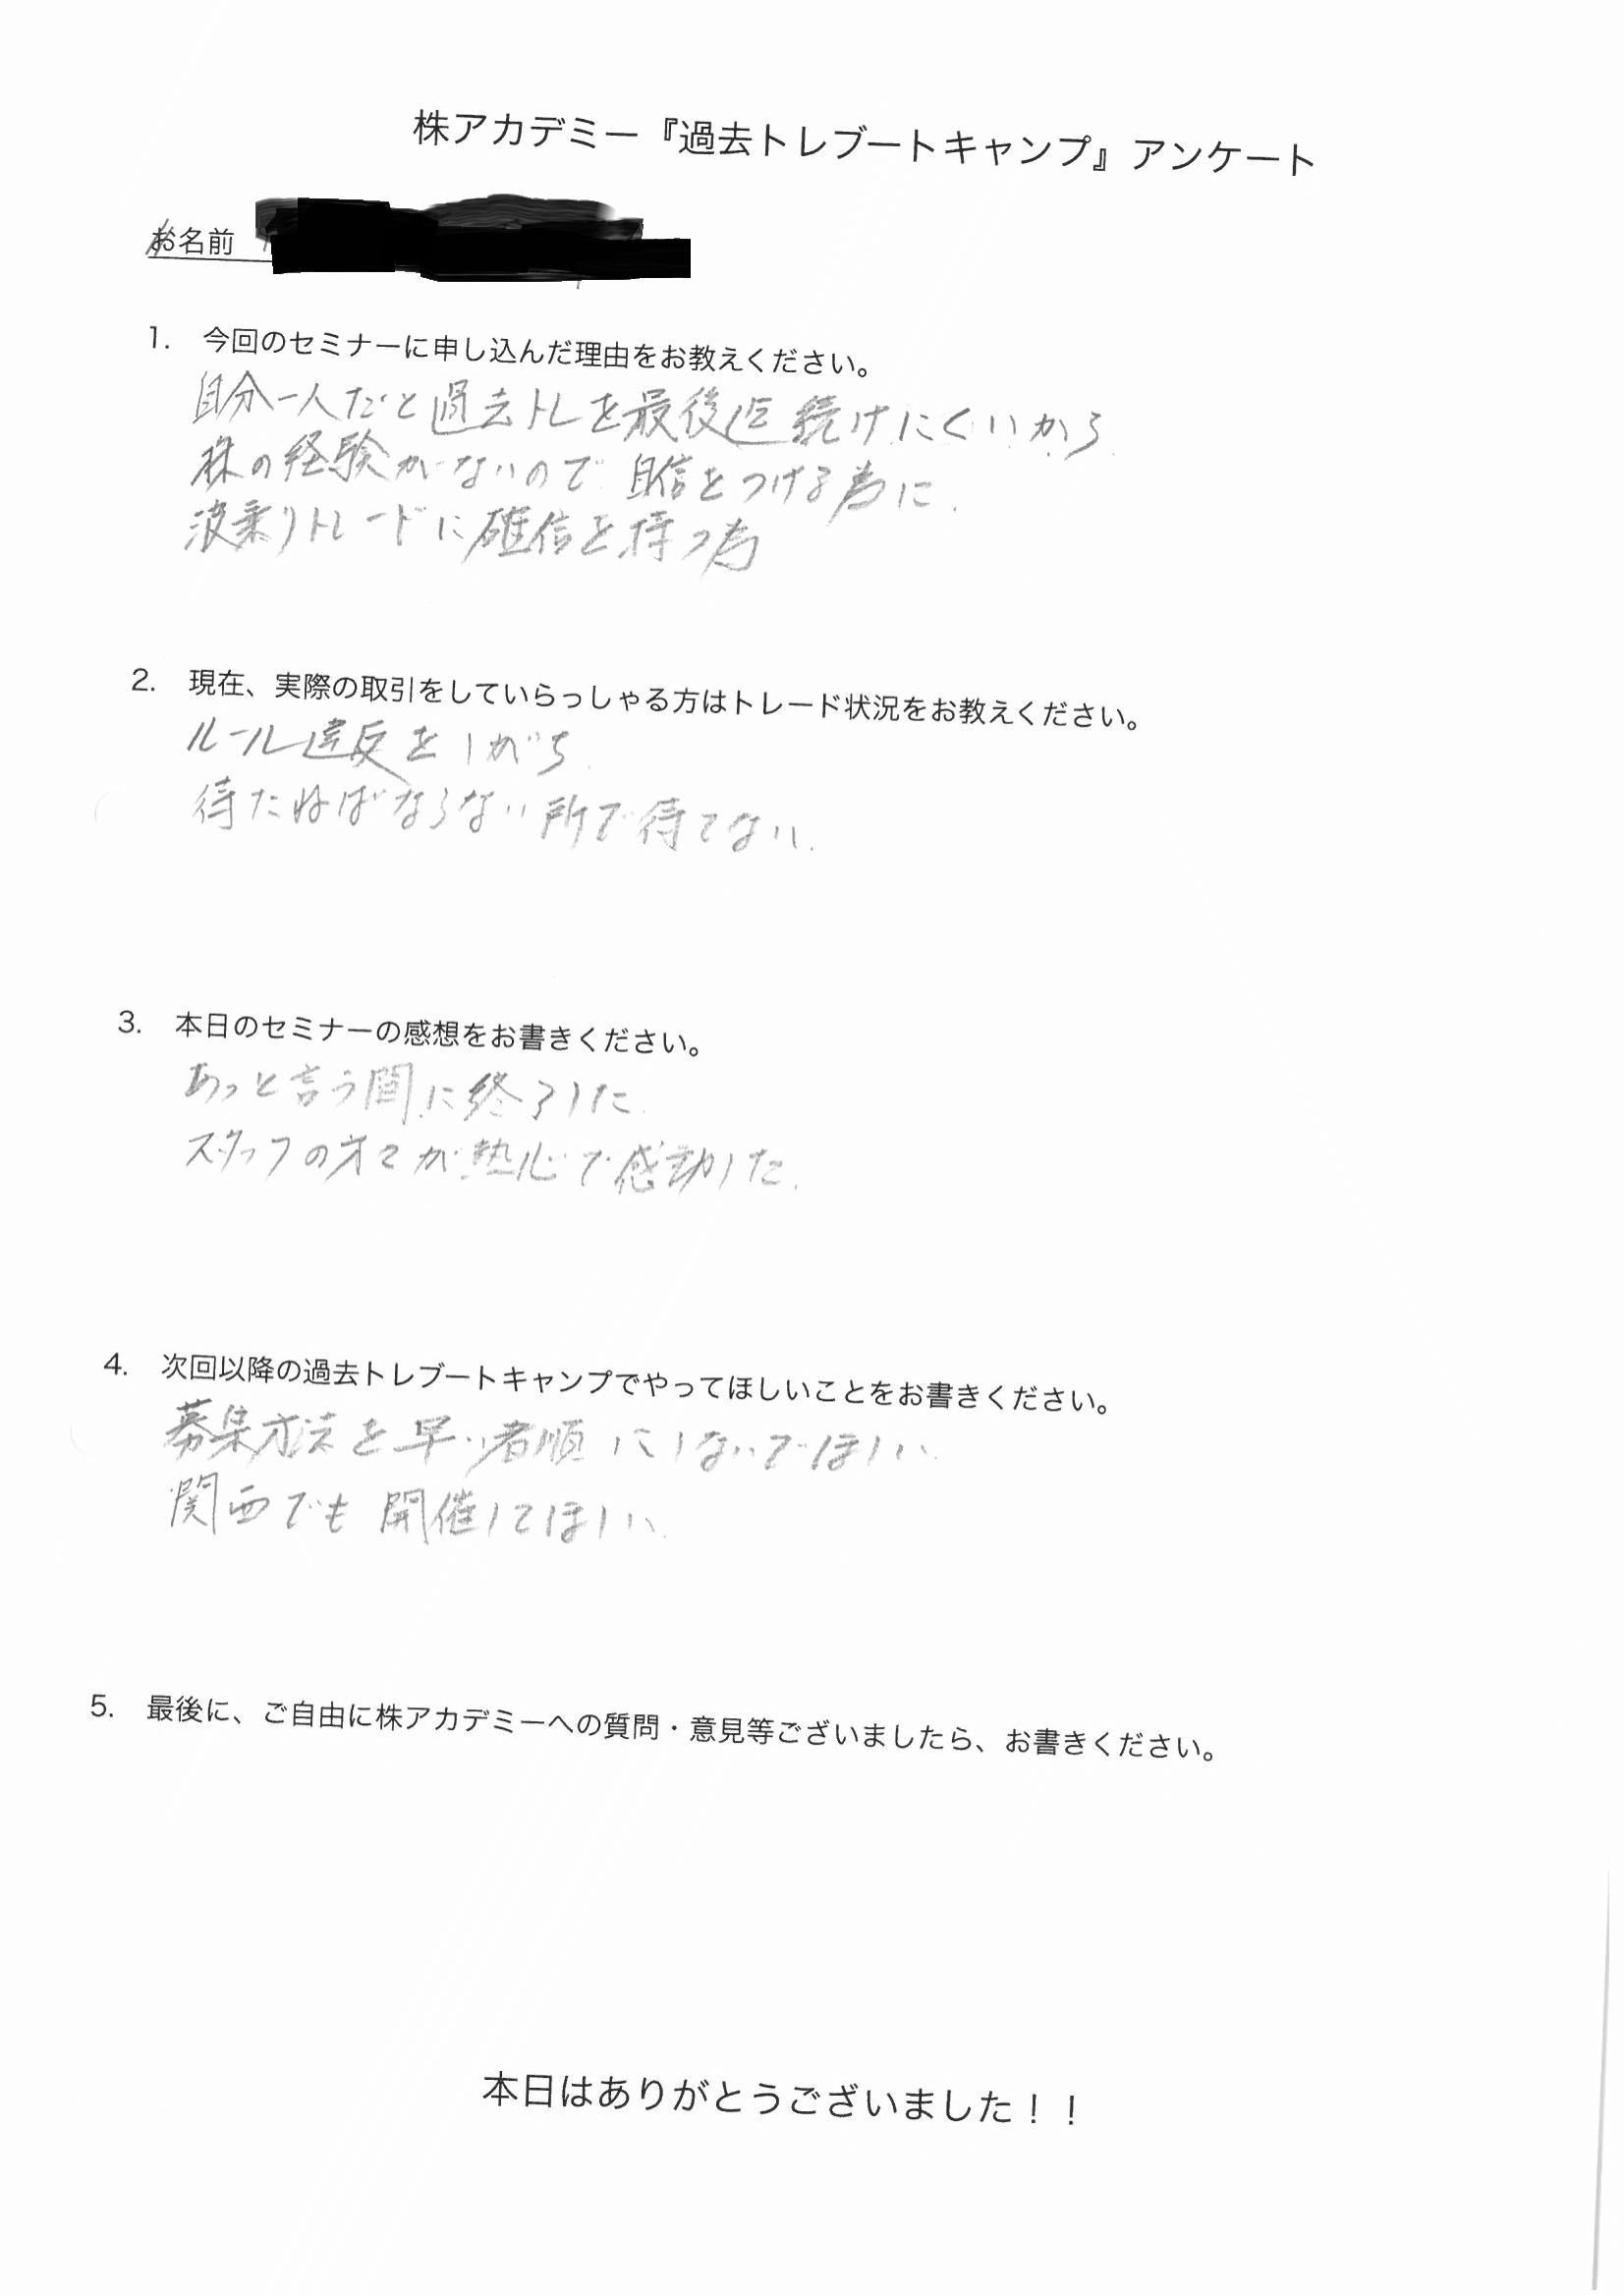 株アカデミー『過去トレブートキャンプ』アンケート
お名前
1. 今回のセミナーに申し込んだ理由をお教えください。
自分一人だと過去トレを最後迄続けにくいから.
株の経験がないので自信をつける為に.
波乗りトレードに確信を持つ為
2. 現在、実際の取引をしていらっしゃる方はトレード状況をお教えください。
ルール違反をしがち.
待たねばならない所で待てない.
3. 本日のセミナーの感想をお書きください。
あっと言う間に終了した.
スタッフの方々が熱心で感動した.
4. 次回以降の過去トレブートキャンプでやってほしいことをお書きください。
募集方法を早い者順にしないでほしい.
関西でも開催してほしい.
5. 最後に、ご自由に株アカデミーへの質問・意見等ございましたら、お書きください。
本日はありがとうございました！！